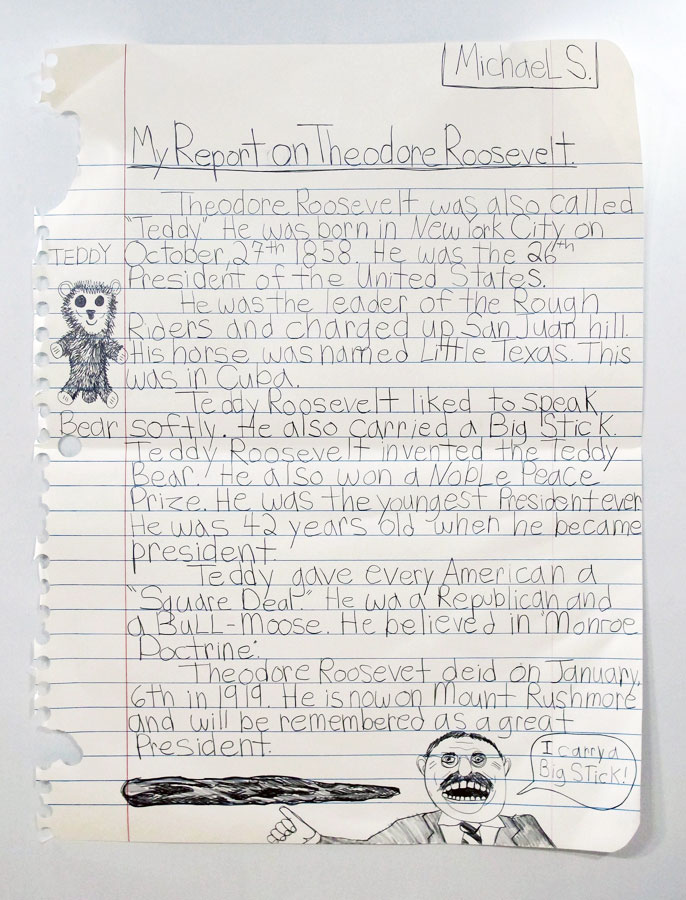 Michael S.
My Report on Theodore Roosevelt.
Theodore Roosevelt was also called
"Teddy" He was born in New York City on
TEDDY
October, 27th 1858. He was the 26th
President of the United States.
He was the leader of the Rough
Riders and charged up San Juan hill.
His horse was named Little Texas. This
was in Cuba.
Teddy Roosevelt liked to speak
Bear
softly. He also carried a Big Stick.
Teddy Roosevelt invented the Teddy
Bear. He also won a Noble Peace
Prize. He was the youngest President ever
He was 42 years old when he became
president.
Teddy gave every American a
"Square Deal." He wa a Republican and
a Bull-Moose. He believed in "Monroe
Doctrine".
Theodore Roosevet deid on January,
6th in 1919. He is now on Mount Rushmore
and will be remembered as a great
President.
I carry a
Big Stick!